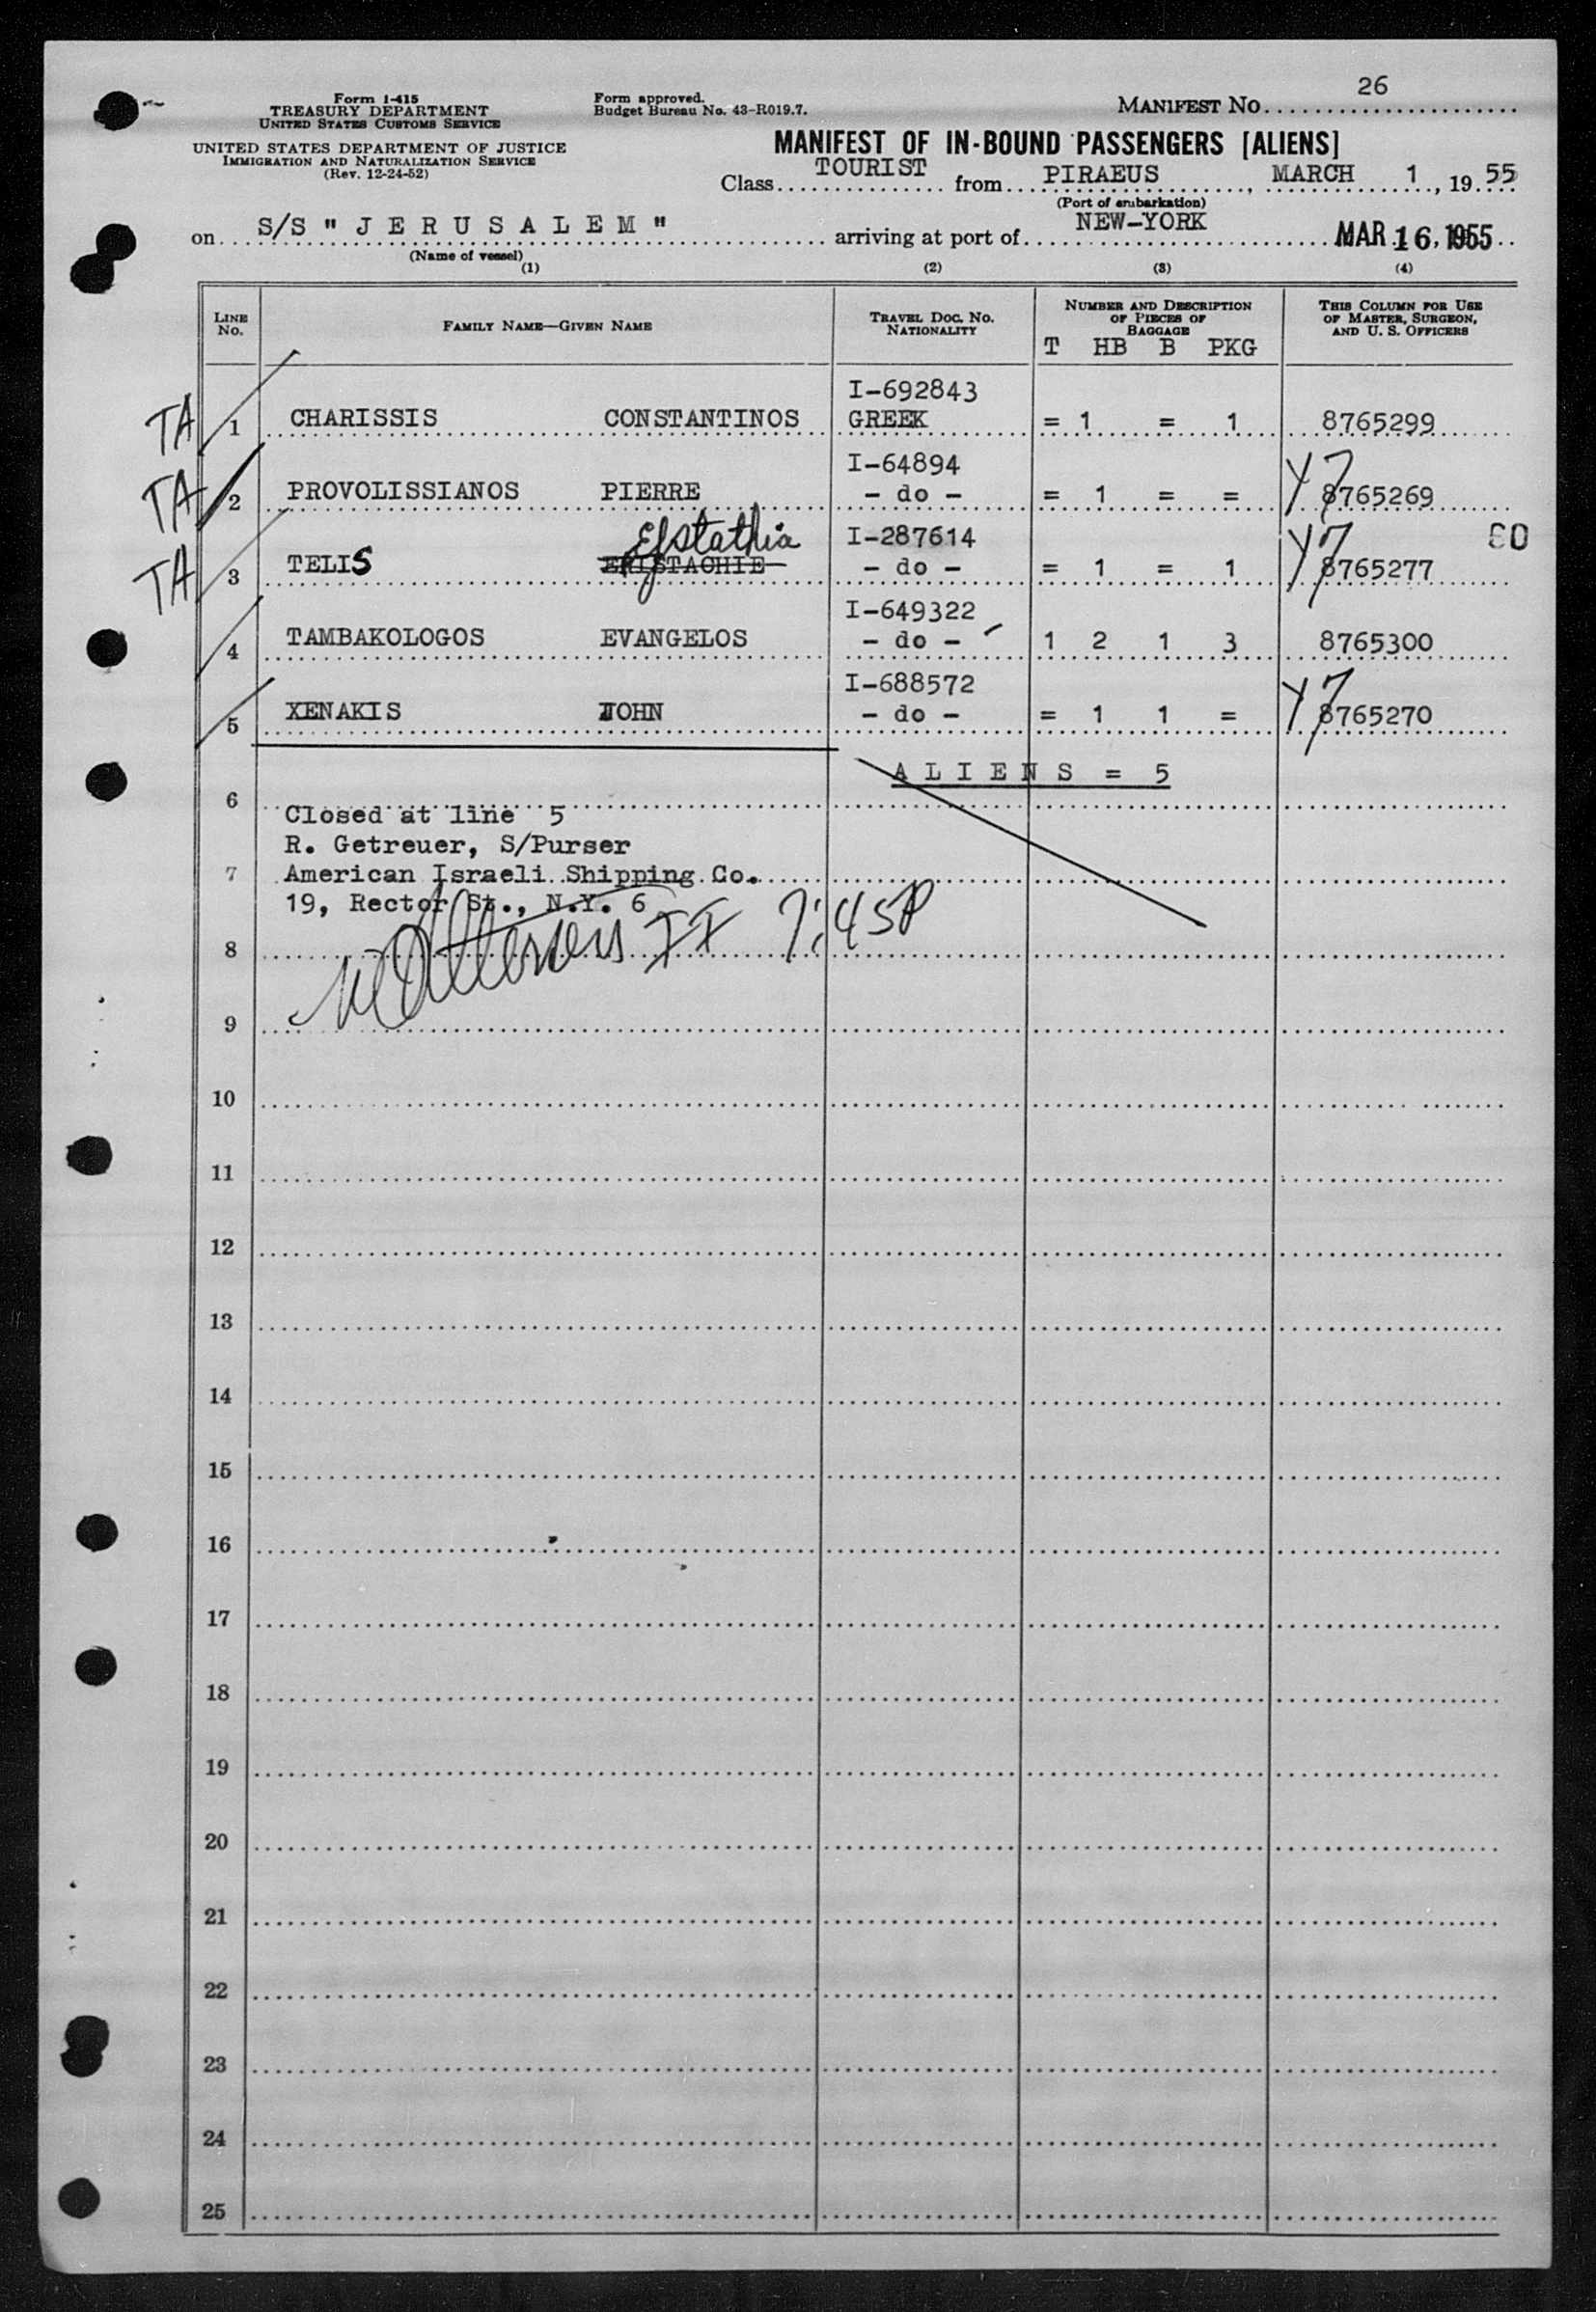 26
Form I-415
TREASURY DEPARTMENT
UNITED STATES CUSTOMS SERVICE
Form approved.
Budget Bureau No. 43-R019.7.
MANIFEST NO.
UNITED STATES DEPARTMENT OF JUSTICE
IMMIGRATION AND NATURALIZATION SERVICE
(Rev. 12-24-52)
MANIFEST OF IN-BOUND PASSENGERS [ALIENS]
Class TOURIST from PIRAEUS, MARCH 1, 19 55
(Port of embarkation)
on S/S " J E R U S A L E M " arriving at port of NEW-YORK MAR 16, 1955
(Name of vessel)
(1) (2) (3) (4)
LINE No. FAMILY NAME—GIVEN NAME TRAVEL DOC. NO. NATIONALITY NUMBER AND DESCRIPTION OF PIECES OF BAGGAGE THIS COLUMN FOR USE OF MASTER, SURGEON, AND U. S. OFFICERS
T HB B PKG
I-692843
TA 1 CHARISSIS CONSTANTINOS GREEK = 1 = 1 8765299
I-64894 Y7
TA 2 PROVOLISSIANOS PIERRE - do - = 1 = = 8765269
Efstathia I-287614 Y7
TA 3 TELIS - do - = 1 = 1 8765277
I-649322
4 TAMBAKOLOGOS EVANGELOS - do - 1 2 1 3 8765300
I-688572 Y7
5 XENAKIS JOHN - do - = 1 1 = 8765270
A L I E N S = 5
6
Closed at line 5
R. Getreuer, S/Purser
7 American Israeli Shipping Co.
19, Rector St., N.Y. 6
8 II 7:45P
9
10
11
12
13
14
15
16
17
18
19
20
21
22
23
24
25